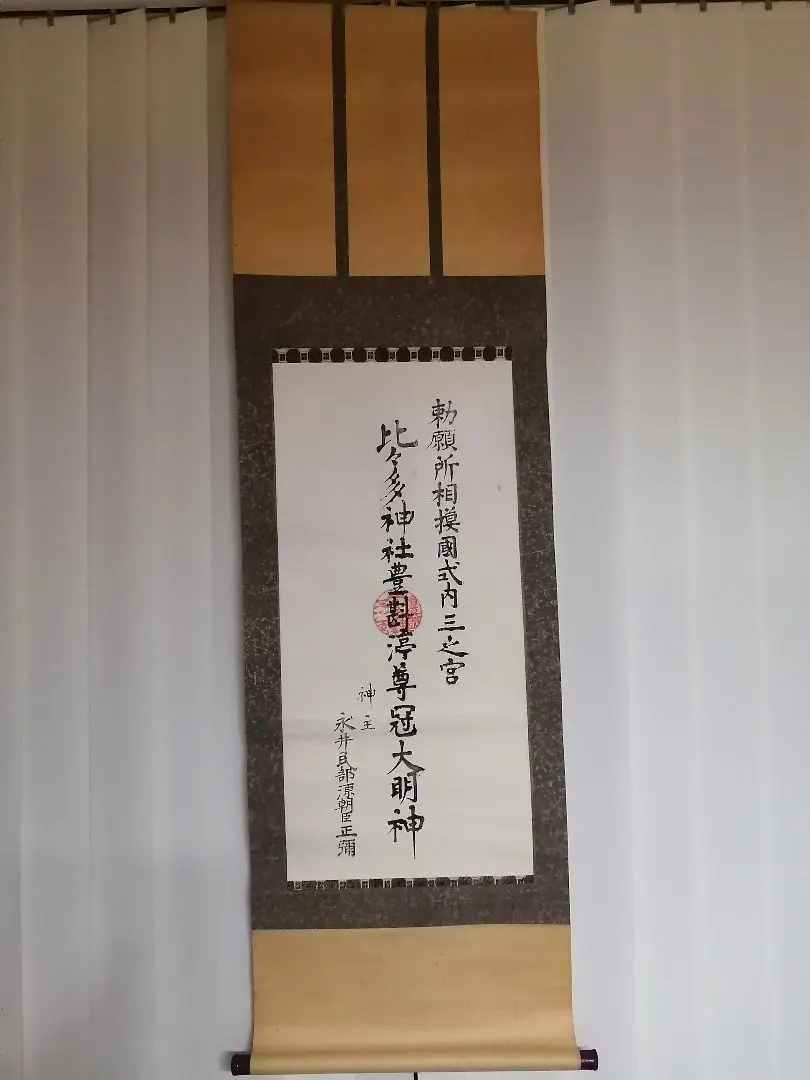 勅願所相摸國式内三之宮
比々多神社豊斟渟尊冠大明神
神主
永井民部源朝臣正彌